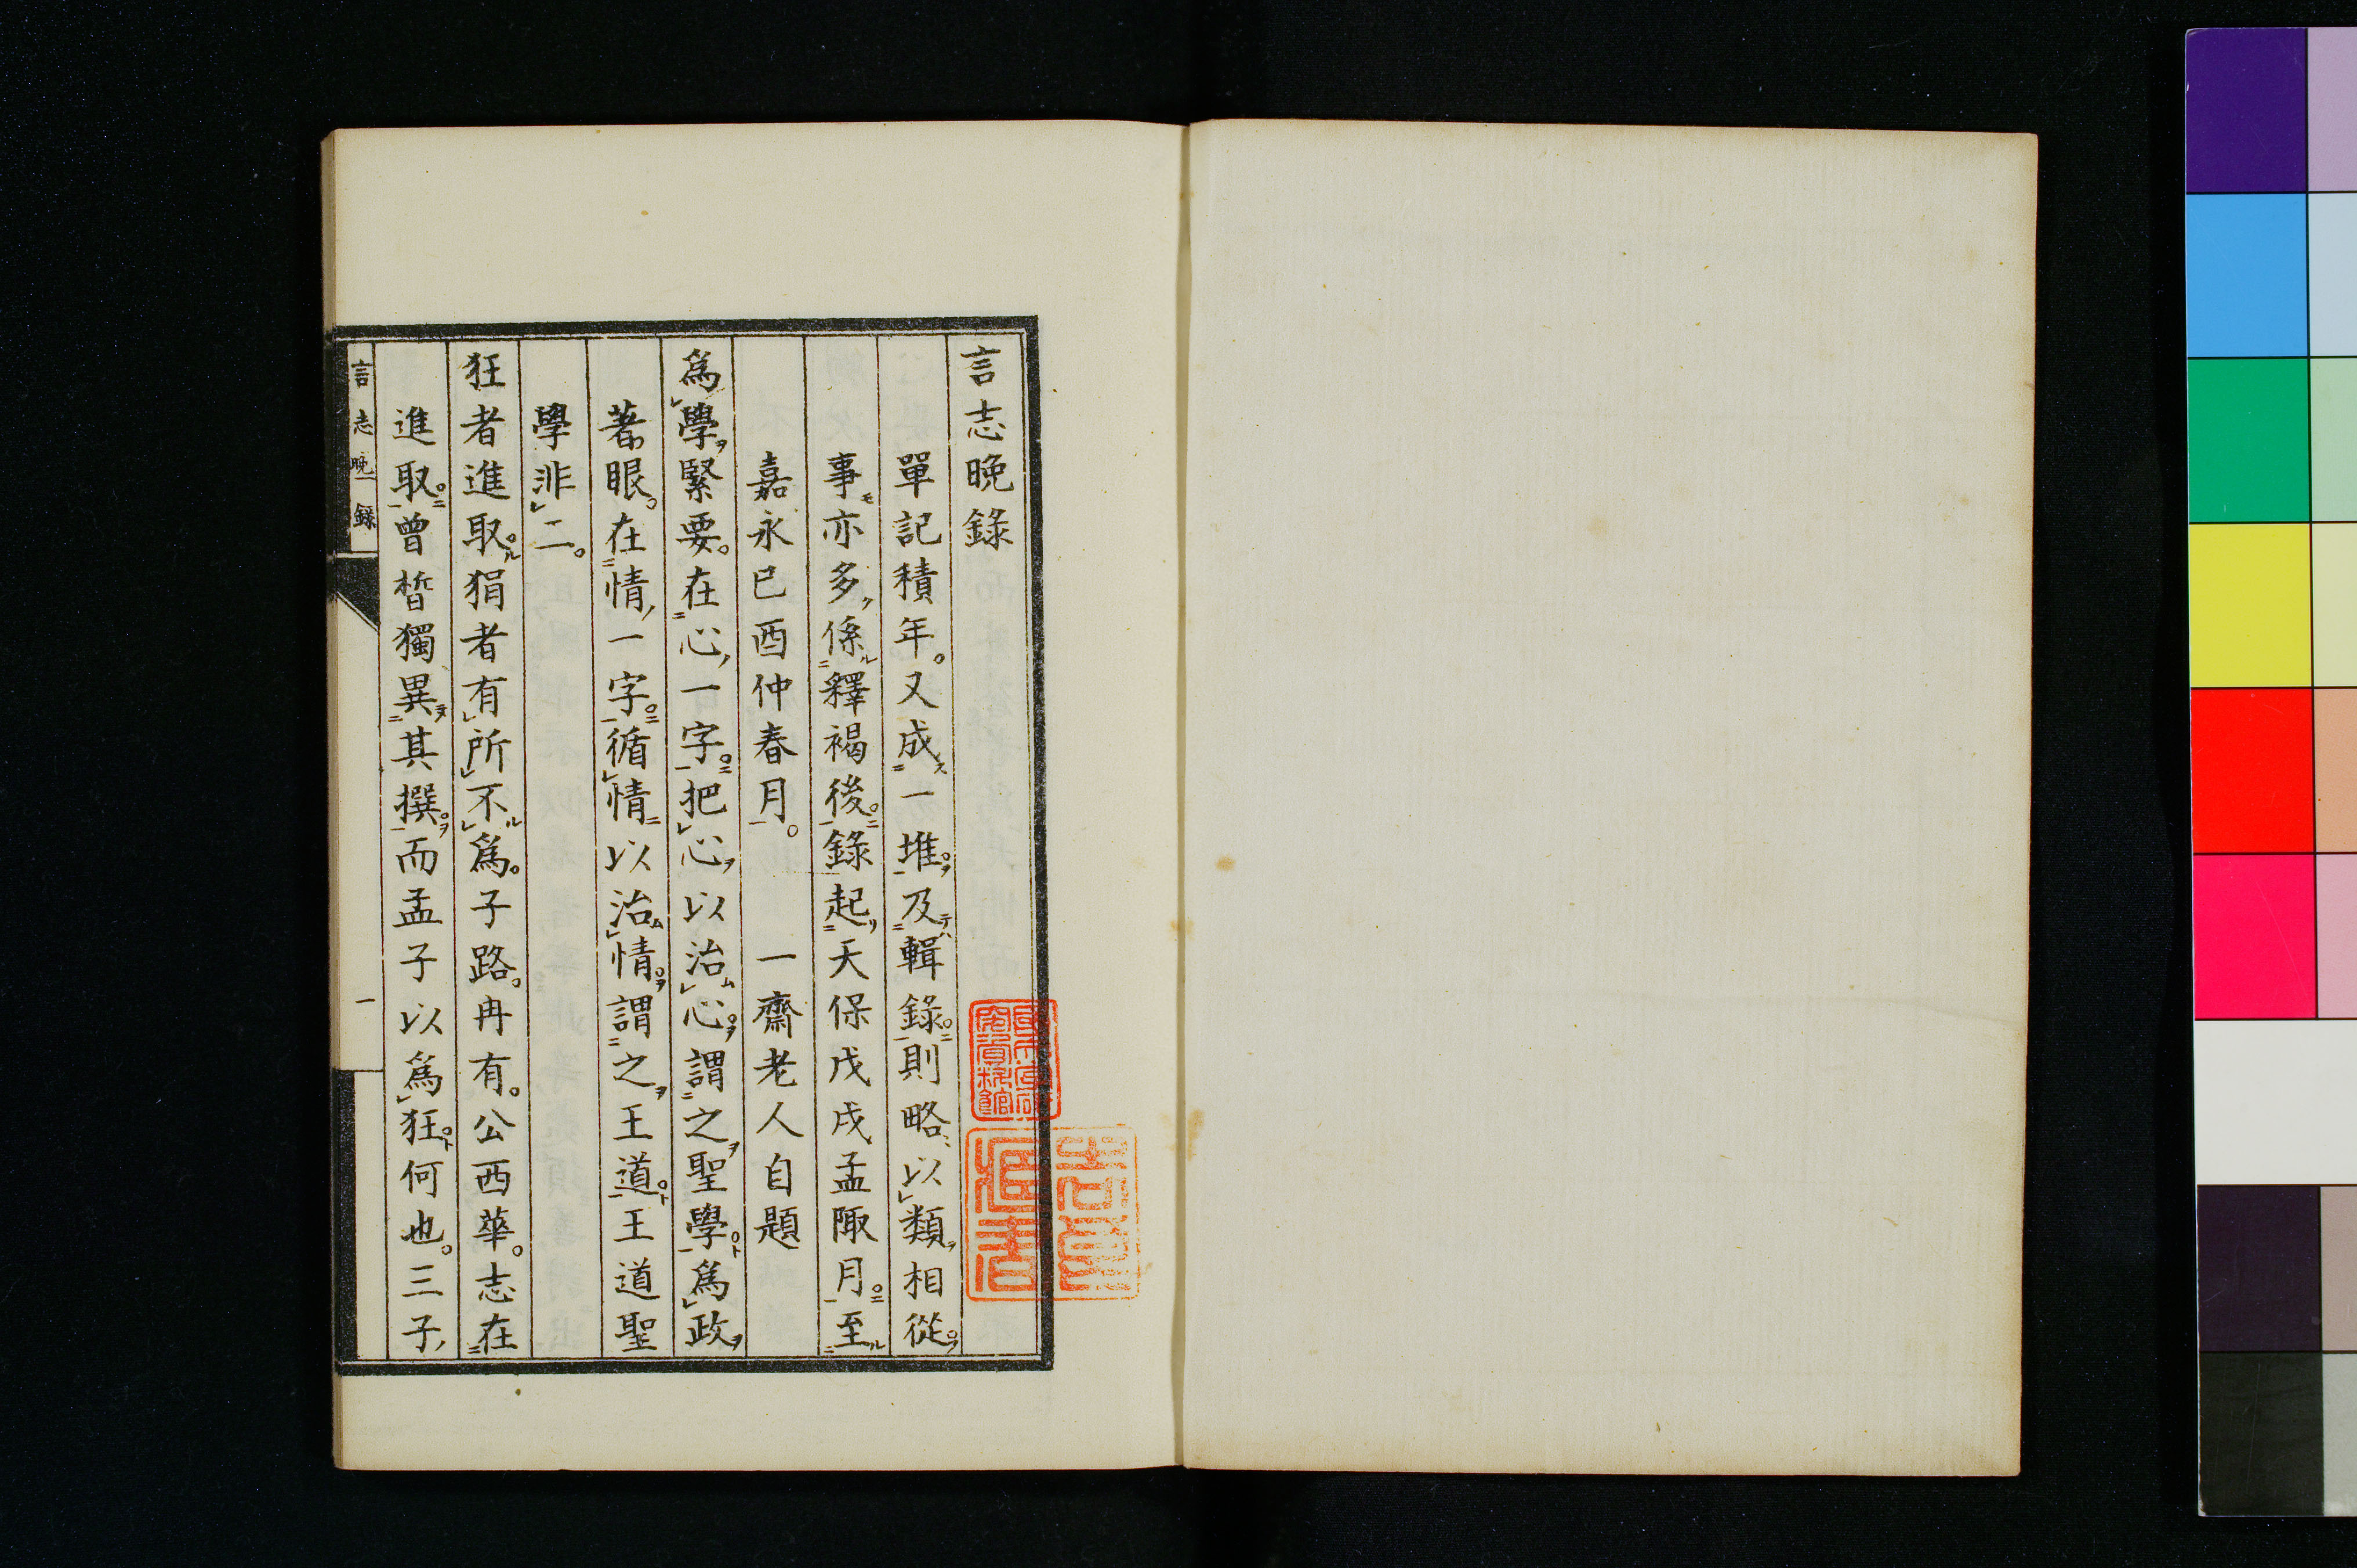 言志晩錄
單記積年。又成一堆。及輯錄。則略以類相從。
事亦多係釋褐後。錄起天保戊戌孟陬月。至
嘉永己酉仲春月。 一齋老人自題
爲學緊要。在心一字。把心以治心。謂之聖學。爲政
著眼。在情一字。循情以治情。謂之王道。王道聖
學非二。
狂者進取。狷者有所不爲。子路。冉有。公西華。志在
進取。曾晳獨異其撰。而孟子以爲狂。何也。三子
言志晩錄 一